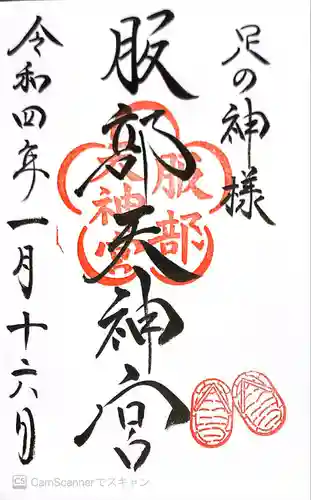 足の神様
服部天神宮
令和四年一月十六日
服部
天神宮
CS CamScannerでスキャン